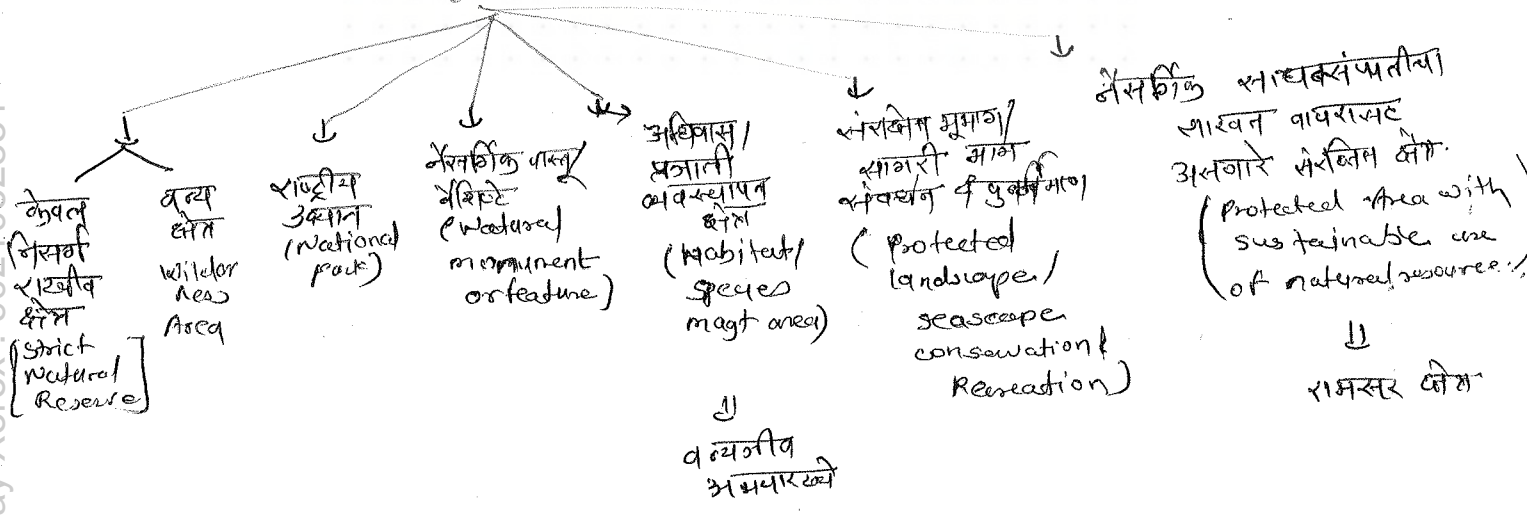 केवल
निसर्ग
राखीव
क्षेत्र
[Strict
Natural
Reserve]
वन्य
क्षेत्र
Wilder
ness
Area
राष्ट्रीय
उद्यान
(National
Park)
नैसर्गिक वास्तू/
वैशिष्टे
(Natural
monument
or feature)
अधिवास/
प्रजाती
व्यवस्थापन
क्षेत्र
(Habitat/
species
magt area)
⇓
वन्यजीव
अभयारण्ये
संरक्षित भूभाग/
सागरी भाग
संवर्धन व
(Protected
landscape/
seascape
conservation &
Recreation)
नैसर्गिक साधनसंपत्तीचा
शाश्वत वापरासह
असणारे संरक्षित क्षेत्र.
(Protected Area with
sustainable use
of natural resources)
⇓
रामसर क्षेत्र